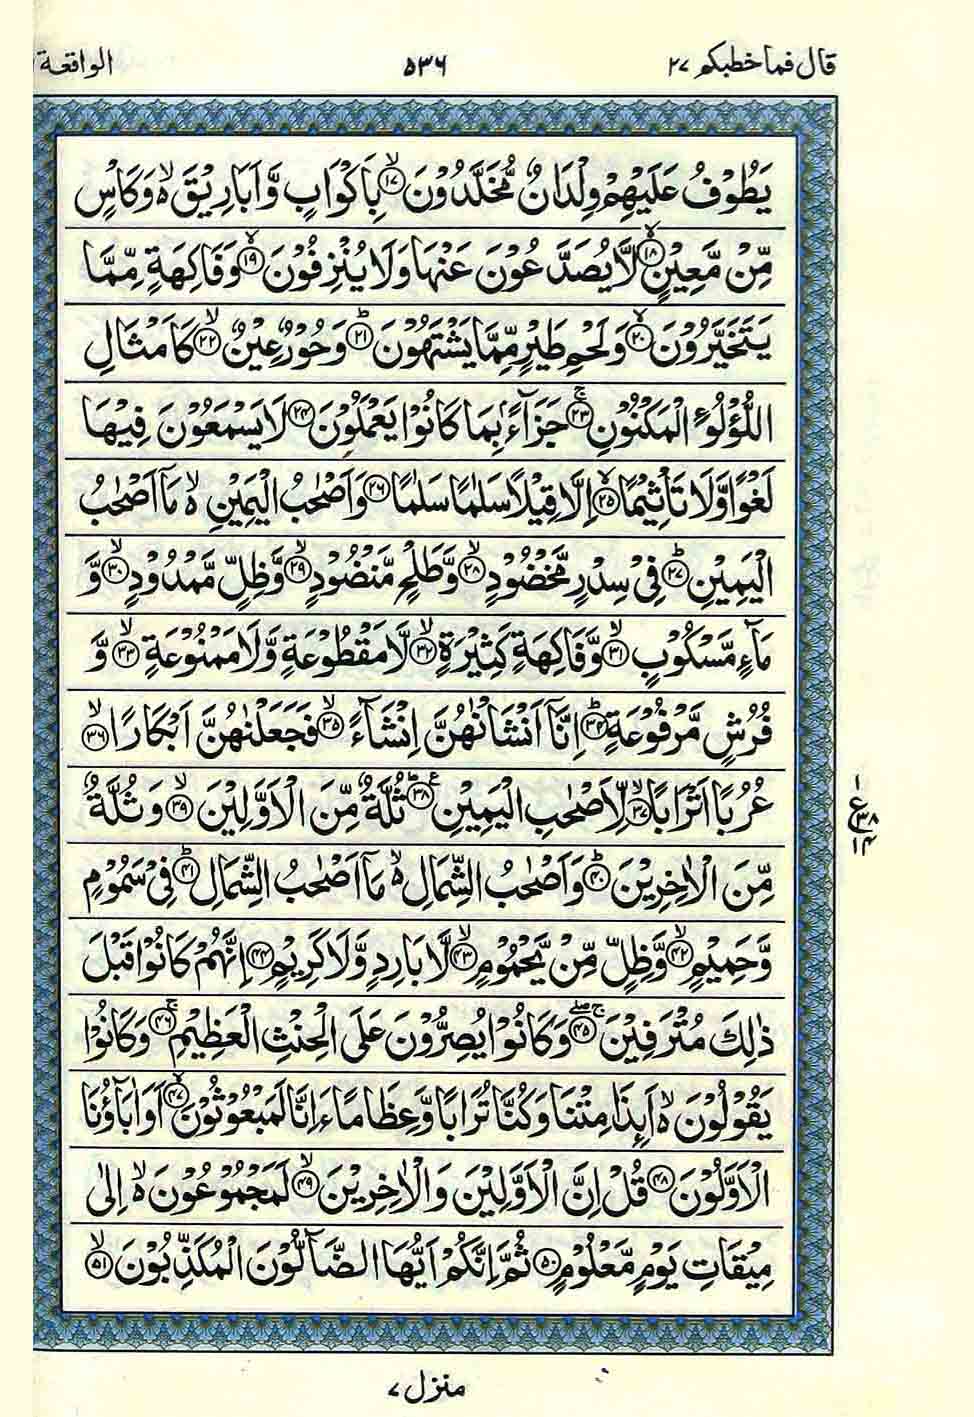 قال فما خطبكم ۲۷
۵۳۶
الواقعة
يَطُوْفُ عَلَيْهِمْ وِلْدَانٌ مُّخَلَّدُوْنَ ۙ﴿۱۷﴾ بِاَكْوَابٍ وَّاَبَارِيْقَ ۙ۬ وَكَاْسٍ
مِّنْ مَّعِيْنٍ ۙ﴿۱۸﴾ لَّا يُصَدَّعُوْنَ عَنْهَا وَلَا يُنْزِفُوْنَ ۙ﴿۱۹﴾ وَفَاكِهَةٍ مِّمَّا
يَتَخَيَّرُوْنَ ۙ﴿۲۰﴾ وَلَحْمِ طَيْرٍ مِّمَّا يَشْتَهُوْنَ ؕ﴿۲۱﴾ وَحُوْرٌ عِيْنٌ ۙ﴿۲۲﴾ كَاَمْثَالِ
اللُّؤْلُؤِ الْمَكْنُوْنِ ۚ﴿۲۳﴾ جَزَآءًۢ بِمَا كَانُوْا يَعْمَلُوْنَ ﴿۲۴﴾ لَا يَسْمَعُوْنَ فِيْهَا
لَغْوًا وَّلَا تَاْثِيْمًا ۙ﴿۲۵﴾ اِلَّا قِيْلًا سَلٰمًا سَلٰمًا ﴿۲۶﴾ وَاَصْحٰبُ الْيَمِيْنِ ۙ۬ مَاۤ اَصْحٰبُ
الْيَمِيْنِ ؕ﴿۲۷﴾ فِيْ سِدْرٍ مَّخْضُوْدٍ ۙ﴿۲۸﴾ وَّطَلْحٍ مَّنْضُوْدٍ ۙ﴿۲۹﴾ وَّظِلٍّ مَّمْدُوْدٍ ۙ﴿۳۰﴾ وَّ
مَآءٍ مَّسْكُوْبٍ ۙ﴿۳۱﴾ وَّفَاكِهَةٍ كَثِيْرَةٍ ۙ﴿۳۲﴾ لَّا مَقْطُوْعَةٍ وَّلَا مَمْنُوْعَةٍ ۙ﴿۳۳﴾ وَّ
فُرُشٍ مَّرْفُوْعَةٍ ؕ﴿۳۴﴾ اِنَّاۤ اَنْشَاْنٰهُنَّ اِنْشَآءً ۙ﴿۳۵﴾ فَجَعَلْنٰهُنَّ اَبْكَارًا ۙ﴿۳۶﴾
عُرُبًا اَتْرَابًا ۙ﴿۳۷﴾ لِّاَصْحٰبِ الْيَمِيْنِ ؕ﴿۳۸﴾ ثُلَّةٌ مِّنَ الْاَوَّلِيْنَ ۙ﴿۳۹﴾ وَثُلَّةٌ
۱
ع۳۸
۱۴
مِّنَ الْاٰخِرِيْنَ ؕ﴿۴۰﴾ وَاَصْحٰبُ الشِّمَالِ ۙ۬ مَاۤ اَصْحٰبُ الشِّمَالِ ؕ﴿۴۱﴾ فِيْ سَمُوْمٍ
وَّحَمِيْمٍ ۙ﴿۴۲﴾ وَّظِلٍّ مِّنْ يَّحْمُوْمٍ ۙ﴿۴۳﴾ لَّا بَارِدٍ وَّلَا كَرِيْمٍ ﴿۴۴﴾ اِنَّهُمْ كَانُوْا قَبْلَ
ذٰلِكَ مُتْرَفِيْنَ ۚۖ﴿۴۵﴾ وَكَانُوْا يُصِرُّوْنَ عَلَى الْحِنْثِ الْعَظِيْمِ ۚ﴿۴۶﴾ وَكَانُوْا
يَقُوْلُوْنَ ۙ۬ اَىِٕذَا مِتْنَا وَكُنَّا تُرَابًا وَّعِظَامًا ءَاِنَّا لَمَبْعُوْثُوْنَ ۙ﴿۴۷﴾ اَوَاٰبَآؤُنَا
الْاَوَّلُوْنَ ﴿۴۸﴾ قُلْ اِنَّ الْاَوَّلِيْنَ وَالْاٰخِرِيْنَ ۙ﴿۴۹﴾ لَمَجْمُوْعُوْنَ ۙ۬ اِلٰى
مِيْقَاتِ يَوْمٍ مَّعْلُوْمٍ ﴿۵۰﴾ ثُمَّ اِنَّكُمْ اَيُّهَا الضَّآلُّوْنَ الْمُكَذِّبُوْنَ ۙ﴿۵۱﴾
منزل ۷